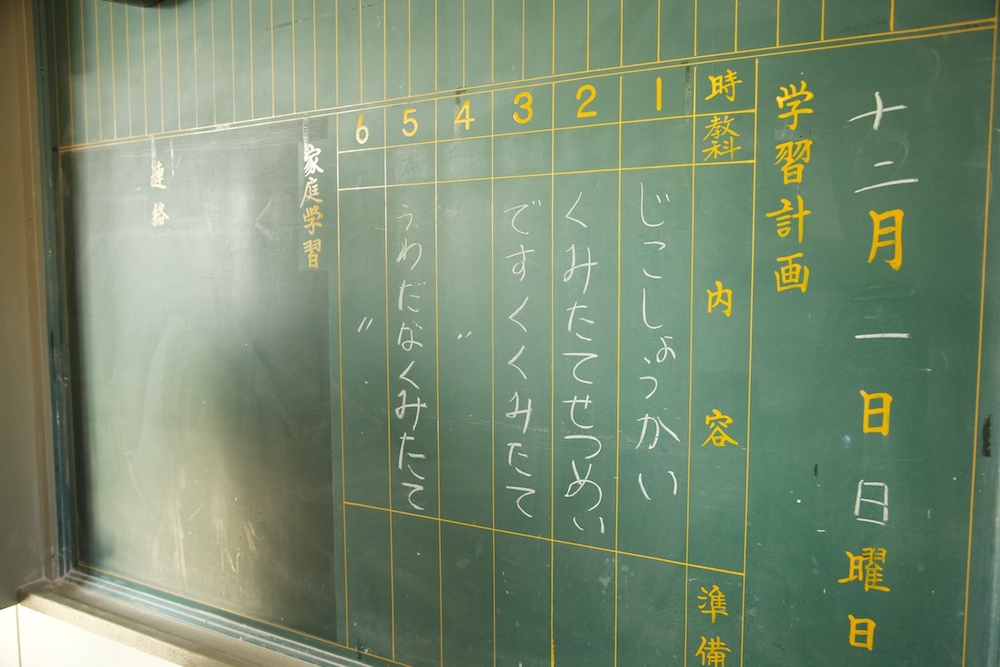 十二月一日日曜日
学習計画
時 教科 内容 準備
1 じこしょうかい
2 くみたてせつめい
3 ですくくみたて
4 〃
5 うわだなくみたて
6 〃
家庭学習
連絡